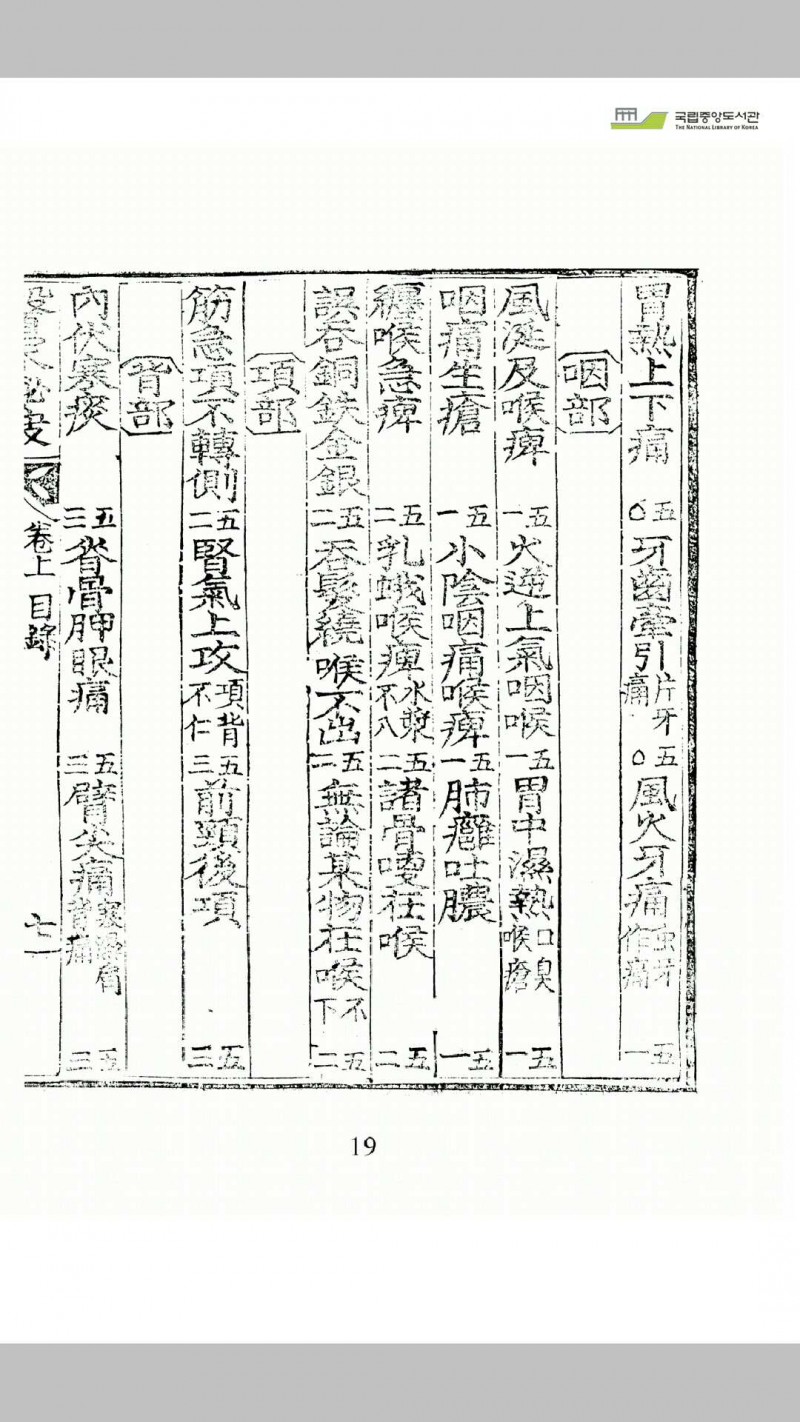 국립중앙도서관
THE NATIONAL LIBRARY OF KOREA
胃熱上下痛 五〇 牙齒牽引片牙痛 五〇 風火牙痛虫牙作痛 五一
咽部
風涎及喉痺 五一 火逆上氣咽喉 五一 胃中濕熱口臭喉瘡 五一
咽痛生瘡 五一 小陰咽痛喉痺 五一 肺癰吐膿 五一
纏喉急痺 五二 乳蛾喉痺水漿不入 五二 諸骨哽在喉 五二
誤吞銅鉄金銀 五二 吞髮繞喉不出 五二 無論某物在喉不下 五二
項部
筋急項不轉側 五二 腎氣上攻項背不仁 五三 前頸後項 五三
背部
內伏寒痰 五三 脊骨胛眼痛 五三 臂尖痛 背痛 五三
卷上 目錄 七
19